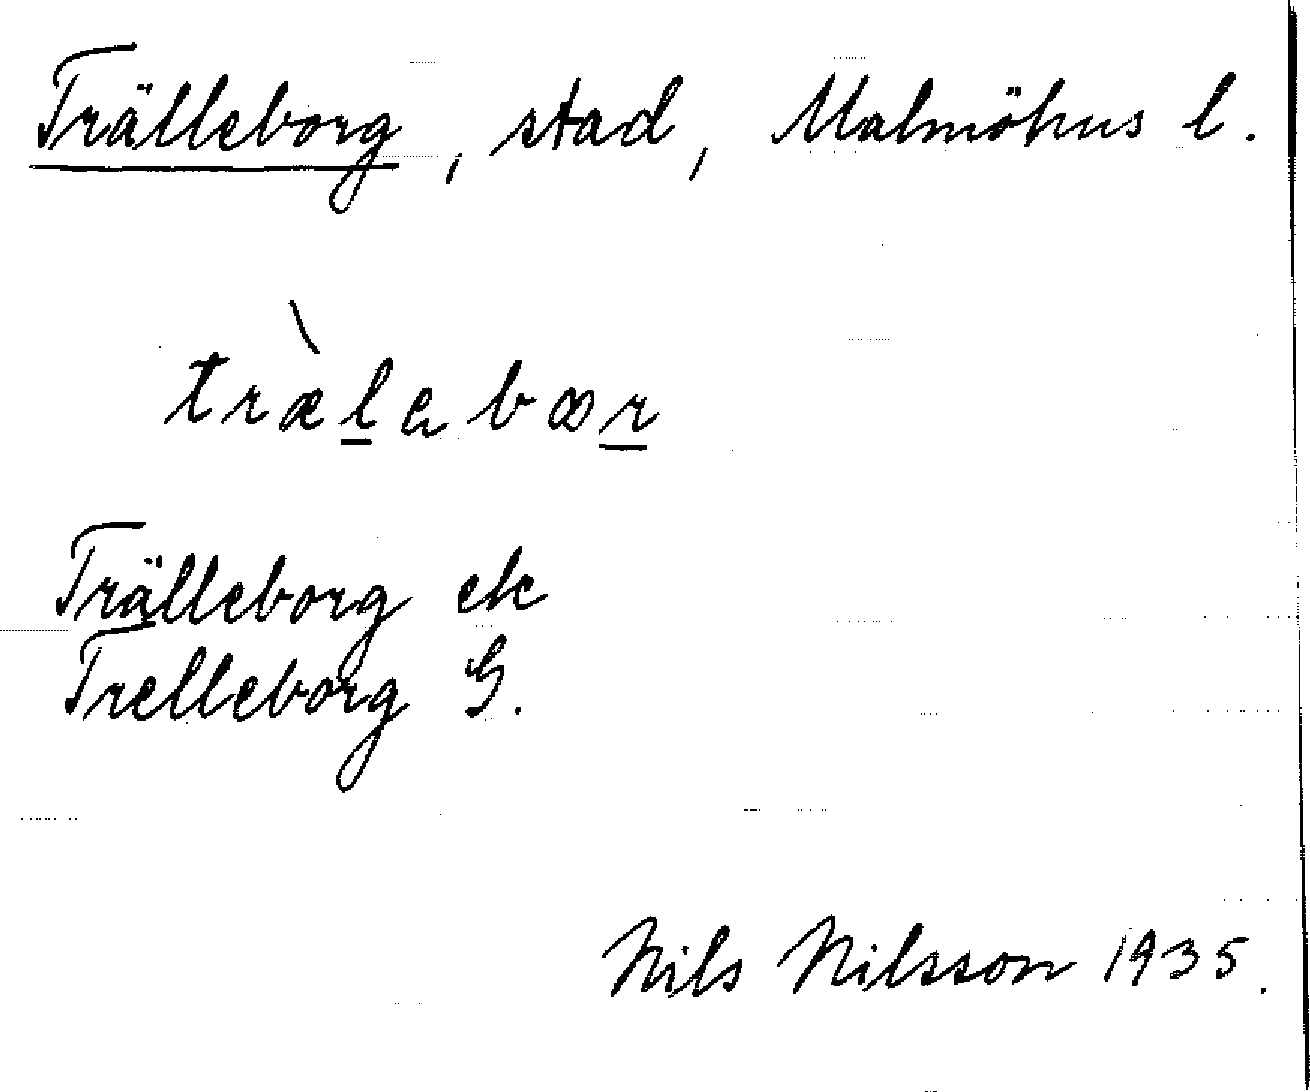 Trälleborg, stad, Malmöhus l.
træ̀l̲ebꝏr̲
Trälleborg ek
Trelleborg G.
Nils Nilsson 1935.